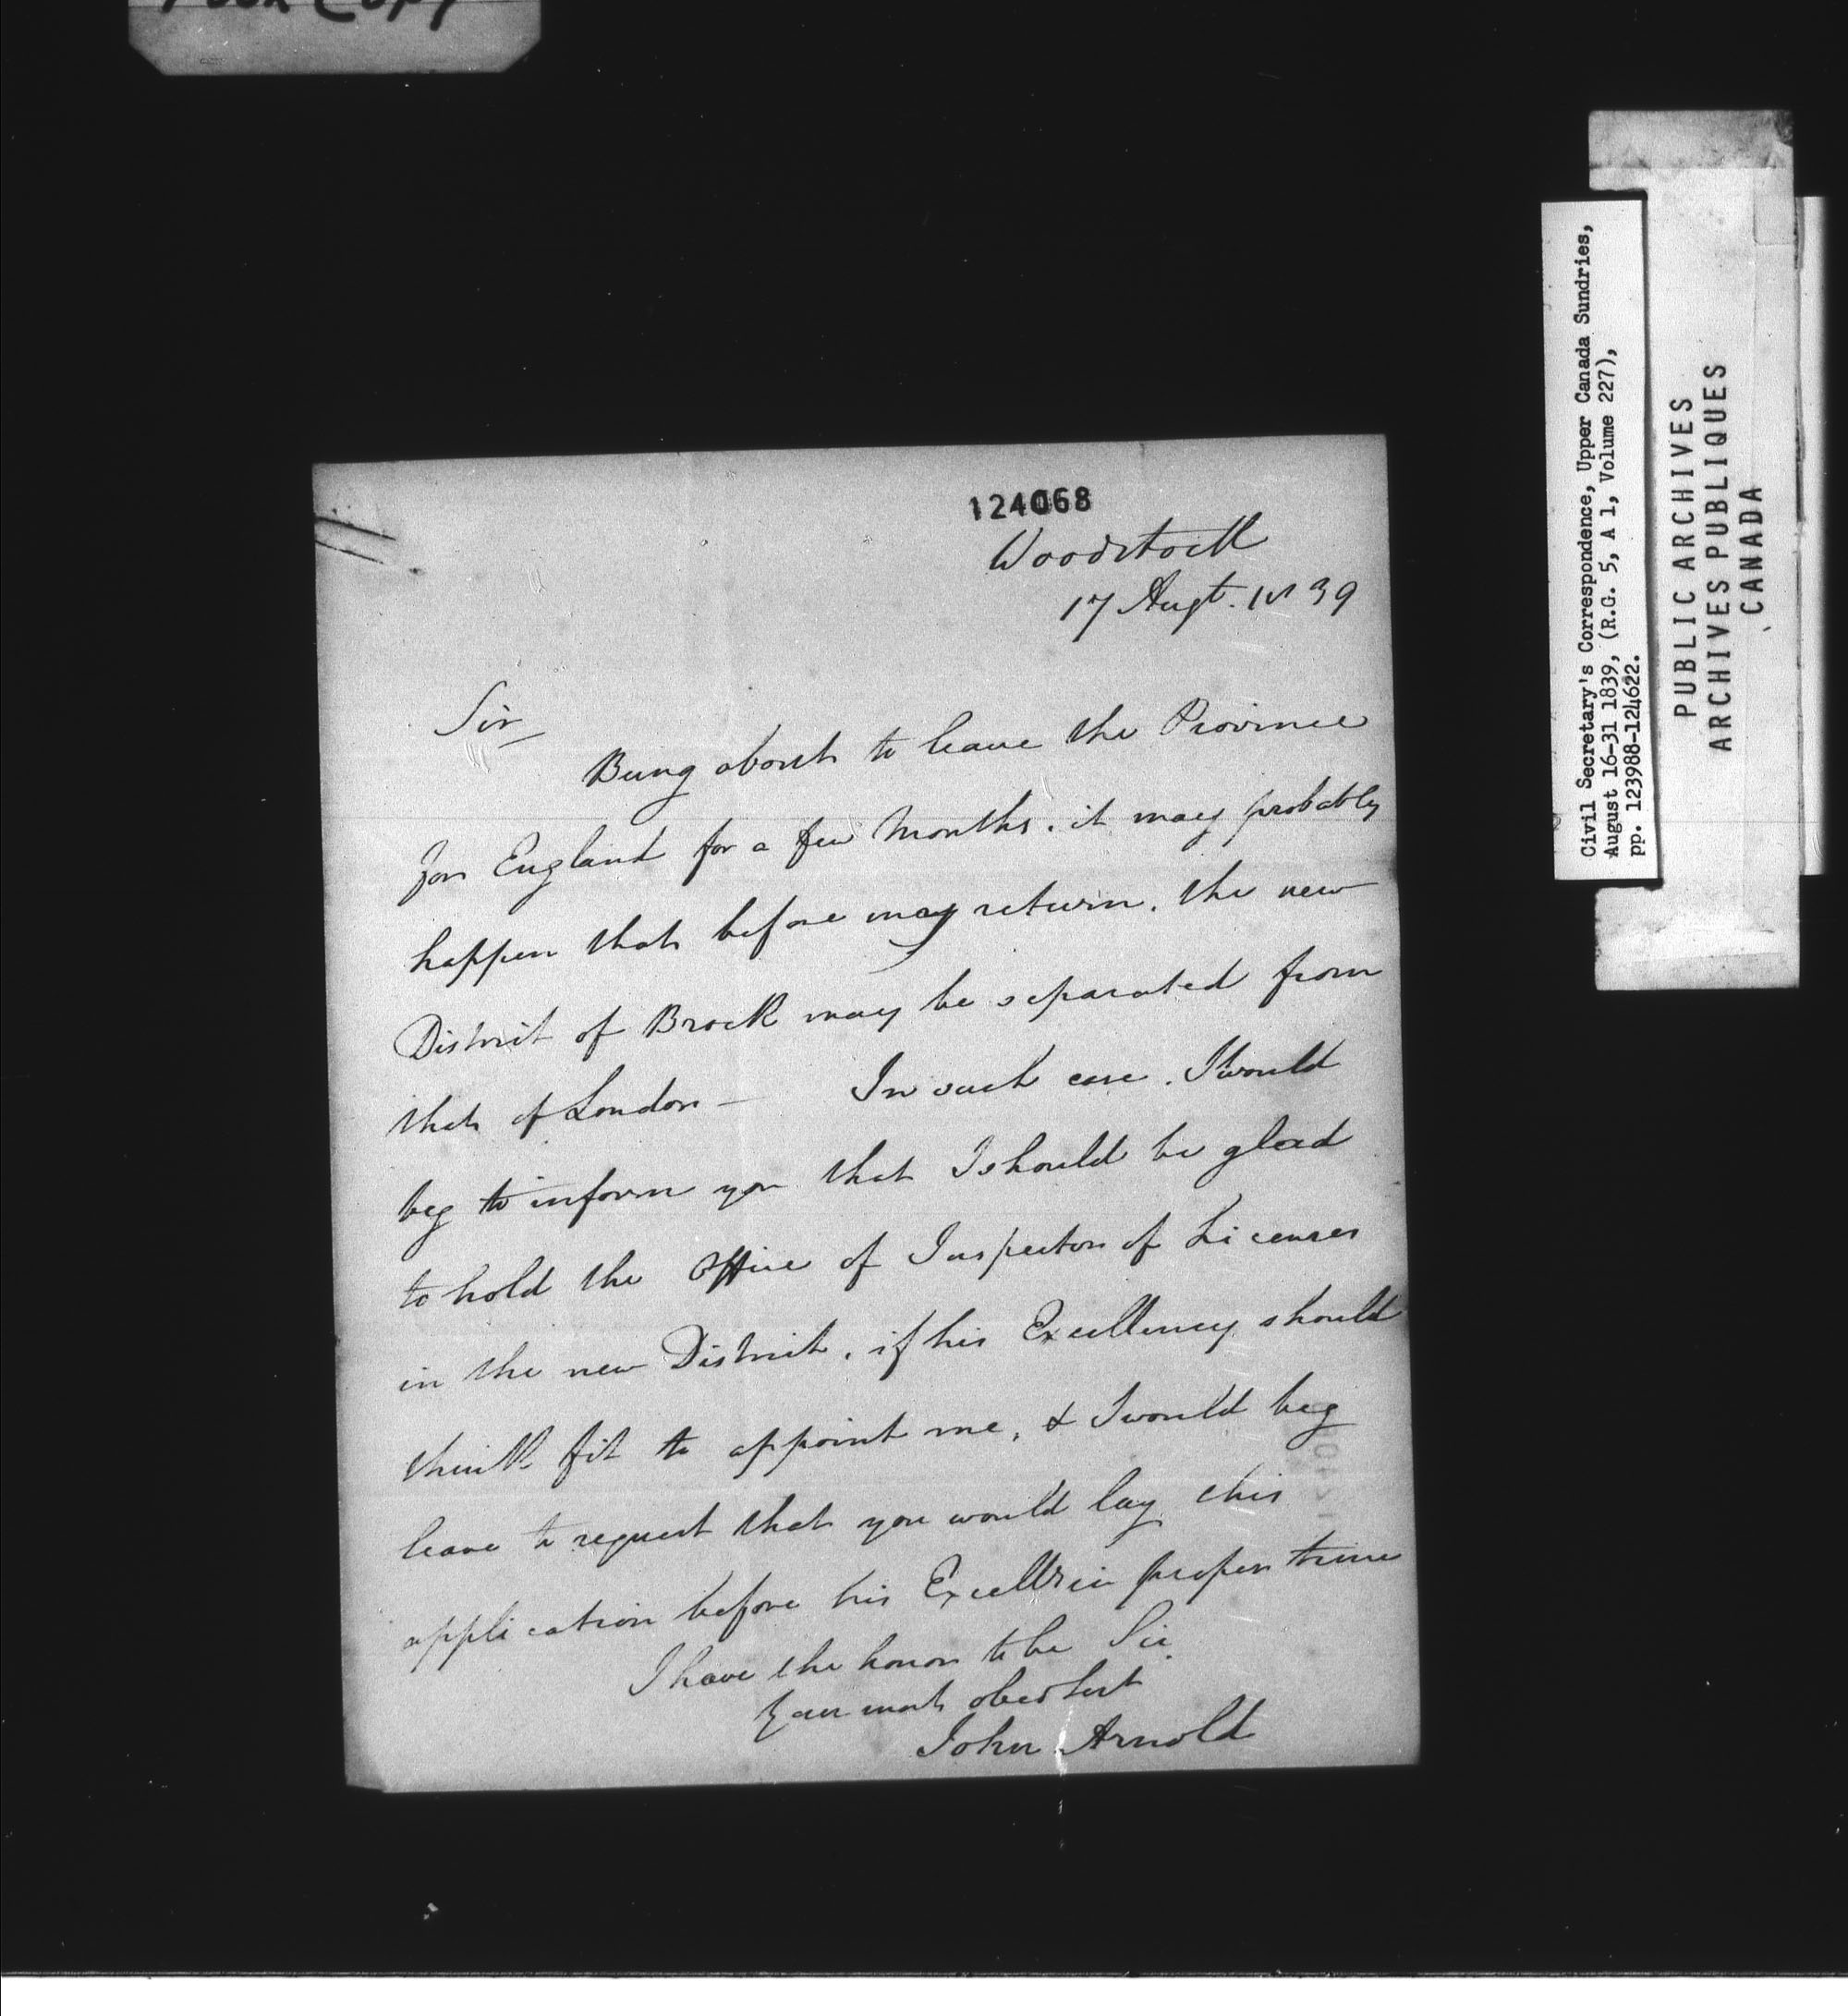 Poor Copy
124068
Woodstock
17 Augt. 1839
Sir
Being about to leave the Province
for England for a few Months, it may probably
happen that before my return, the new
District of Brock may be separated from
that of London — In such case, I would
beg to inform you that I should be glad
to hold the Office of Inspector of Licenses
in the new District, if his Excellency should
think fit to appoint me, & I would beg
leave to request that you would lay this
application before his Excelly in proper time
I have the honor to be Sir
Your most obedt Sert
John Arnold
Civil Secretary's Correspondence, Upper Canada Sundries,
August 16-31 1839, (R.G. 5, A 1, Volume 227),
pp. 123988-124622.
PUBLIC ARCHIVES
ARCHIVES PUBLIQUES
CANADA